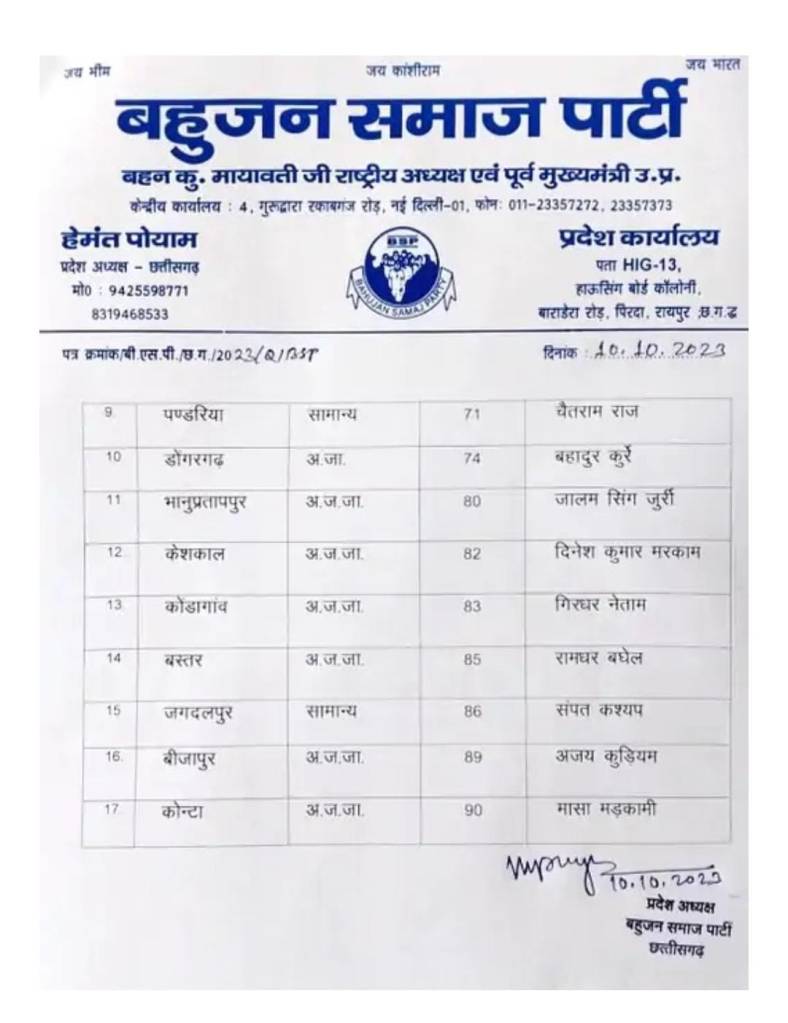 जय भीम जय कांशीराम जय भारत
बहुजन समाज पार्टी
बहन कु. मायावती जी राष्ट्रीय अध्यक्ष एवं पूर्व मुख्यमंत्री उ.प्र.
केन्द्रीय कार्यालय : 4, गुरूद्वारा रकाबगंज रोड़, नई दिल्ली-01, फोनः 011-23357272, 23357373
हेमंत पोयाम
प्रदेश अध्यक्ष - छत्तीसगढ़
मो0 : 9425598771
8319468533
BSP
BAHUJAN SAMAJ PARTY
प्रदेश कार्यालय
पता HIG-13,
हाऊसिंग बोर्ड कॉलोनी,
बाराडेरा रोड़, पिरदा, रायपुर छ.ग.
पत्र क्रमांक/बी.एस.पी./छ.ग./2023/Q/BSP दिनांक : 10.10.2023
9. पण्डरिया सामान्य 71 चैतराम राज
10 डोंगरगढ़ अ.जा. 74 बहादुर कुर्रे
11 भानुप्रतापपुर अ.ज.जा. 80 जालम सिंग जुर्री
12. केशकाल अ.ज.जा. 82 दिनेश कुमार मरकाम
13. कोंडागांव अ.ज.जा. 83 गिरधर नेताम
14 बस्तर अ.ज.जा. 85 रामधर बघेल
15 जगदलपुर सामान्य 86 संपत कश्यप
16. बीजापुर अ.ज.जा. 89 अजय कुड़ियम
17. कोन्टा अ.ज.जा. 90 मासा मड़कामी
10.10.2023
प्रदेश अध्यक्ष
बहुजन समाज पार्टी
छत्तीसगढ़